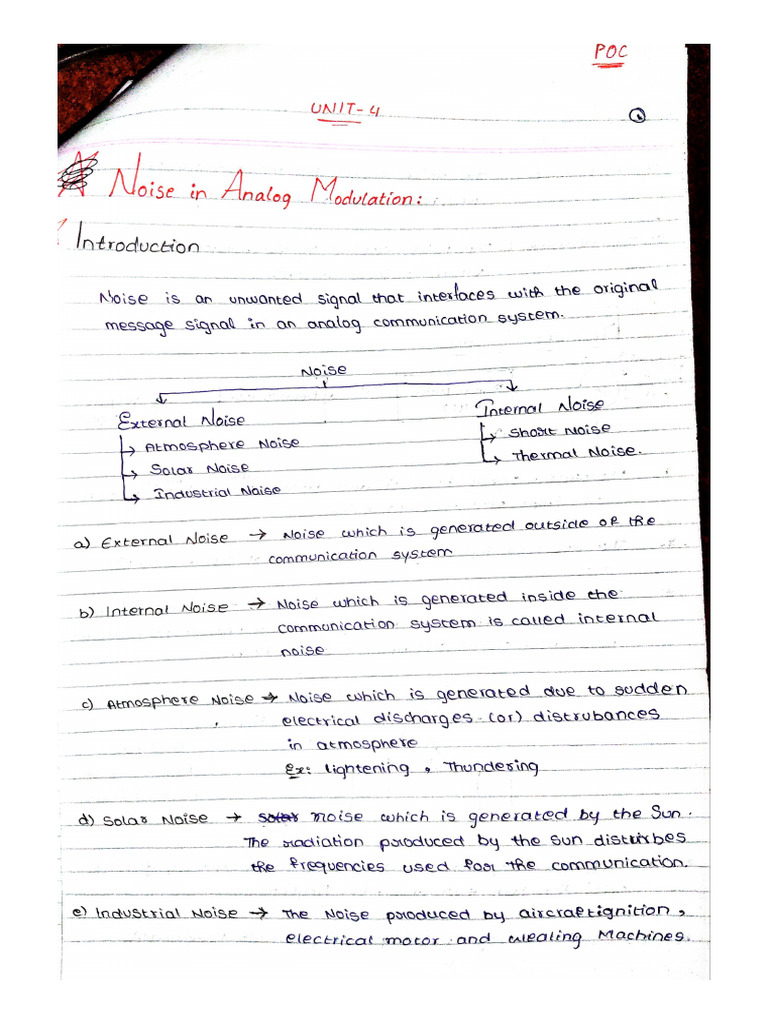 POC
UNIT-4
1
Noise in Analog Modulation:
Introduction
Noise is an unwanted signal that interfaces with the original
message signal in an analog communication system.
Noise
External Noise
Internal Noise
Atmosphere Noise
Short Noise
Solar Noise
Thermal Noise.
Industrial Noise
a) External Noise → Noise which is generated outside of the
communication system
b) Internal Noise → Noise which is generated inside the
communication system is called internal
noise
c) Atmosphere Noise → Noise which is generated due to sudden
electrical discharges (or) distrubances
in atmosphere
Ex: lightening , Thundering
d) Solar Noise → solar noise which is generated by the Sun.
The radiation produced by the sun distrubes
the frequencies used for the communication.
e) Industrial Noise → The Noise produced by aircraft ignition,
electrical motor and wealing Machines.